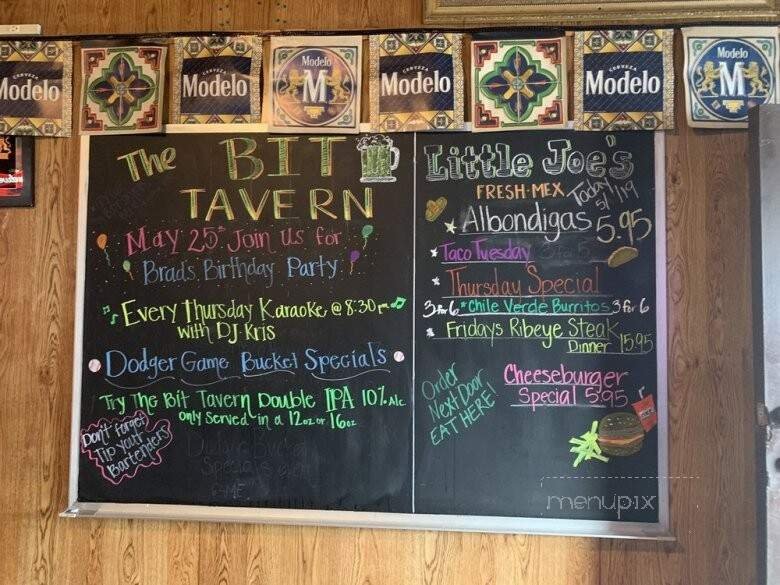 CERVEZA
Modelo
CERVEZA
Modelo
Modelo
M
CERVEZA
Modelo
CERVEZA
Modelo
Modelo
M
The BIT
TAVERN
May 25th Join Us for
Brads Birthday Party
Every Thursday Karaoke @ 8:30pm
with DJ Kris
Dodger Game Bucket Specials
Try The Bit Tavern Double IPA 10% Alc
only served in a 12oz or 16oz
Don't forget
Tip your
Bartenders
Little Joe's
FRESH-MEX
Today
5/19
Albondigas 5.95
Taco Tuesday
Thursday Special
3 for 6 Chile Verde Burritos 3 for 6
Fridays Ribeye Steak
Dinner 15.95
Order
Next Door
EAT HERE!
Cheeseburger
Special 5.95
menupix